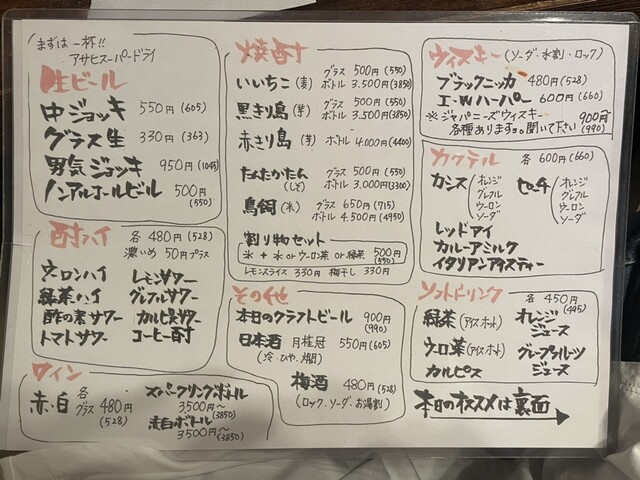 まずは一杯!!
アサヒスーパードライ
生ビール
中ジョッキ 550円(605)
グラス生 330円(363)
男気ジョッキ 950円(1045)
ノンアルコールビール 500円(550)
酎ハイ 各480円(528)
濃いめ 50円プラス
ウーロンハイ レモンサワー
緑茶ハイ グレフルサワー
酢の素サワー カルピスサワー
トマトサワー コーヒー酎
ワイン
赤・白 各グラス 480円(528)
スパークリングボトル 3500円〜(3850)
赤白ボトル 3500円〜(3850)
焼酎
いいちこ(麦) グラス 500円(550)
ボトル 3.500円(3850)
黒きり島(芋) グラス 500円(550)
ボトル 3.500円(3850)
赤きり島(芋) ボトル 4.000円(4400)
たんたかたん(しそ) グラス 500円(550)
ボトル 3.000円(3300)
鳥飼(米) グラス 650円(715)
ボトル 4.500円(4950)
割り物セット
氷+水 or ウーロン茶 or 緑茶 500円(550)
レモンスライス 330円 梅干し 330円
その他
本日のクラフトビール 900円(990)
日本酒 月桂冠 550円(605)
(冷・ひや・燗)
梅酒 480円(528)
(ロック・ソーダ・お湯割)
ウィスキー(ソーダ・水割・ロック)
ブラックニッカ 480円(528)
I・Wハーパー 600円(660)
※ジャパニーズウィスキー 900円〜(990)
各種あります。聞いて下さい
カクテル 各600円(660)
カシス(オレンジ グレフル ウーロン ソーダ)
ピーチ(オレンジ グレフル ウーロン ソーダ)
レッドアイ
カルーアミルク
イタリアンアイスティー
ソフトドリンク 各450円(495)
緑茶(アイスホット) オレンジジュース
ウーロン茶(アイスホット) グレープフルーツジュース
カルピス
本日のオススメは裏面